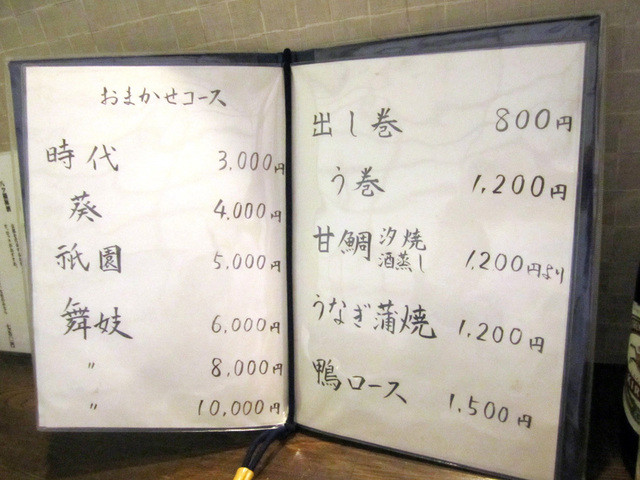 おまかせコース
時代 3,000円
葵 4,000円
祇園 5,000円
舞妓 6,000円
〃 8,000円
〃 10,000円
出し巻 800円
う巻 1,200円
甘鯛 汐焼 酒蒸し 1,200円より
うなぎ蒲焼 1,200円
鴨ロース 1,500円